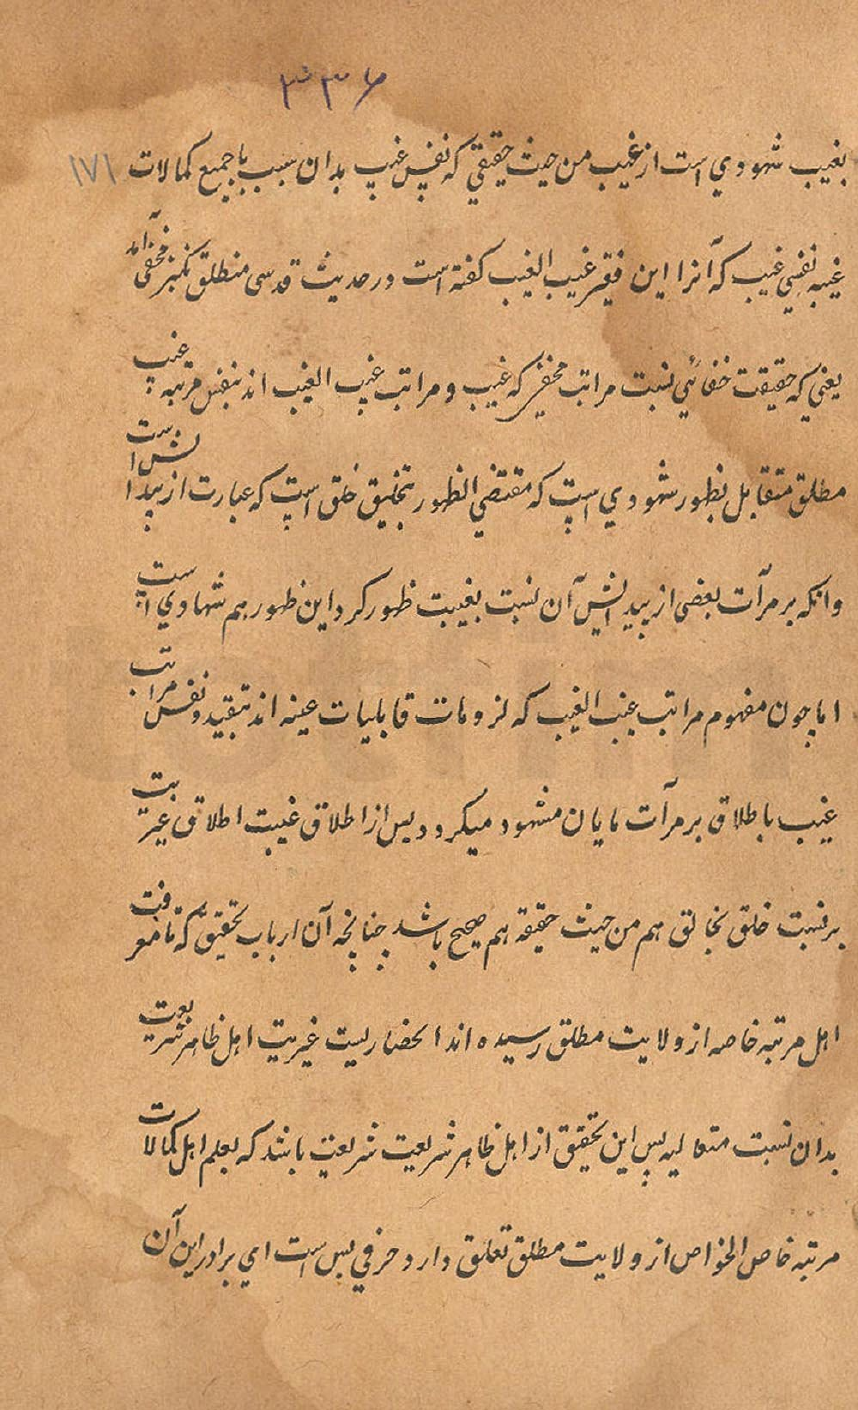 ۳۳۶
بغیب شهودی است از غیب من حیث حقیقی که نفس غیب بدان سبب با جمیع کمالات ۱۷۱
غیبه نفسی غیب که آنرا این فقیر غیب الغیب گفته است در حدیث قدسی منطلق بکنز مخفی آمد
یعنی که حقیقت خفائی نسبت مراتب مخفی که غیب و مراتب غیب الغیب اند بنفس مرتبه غیب
مطلق متقابل بظهور شهودی است که مقتضی الظهور بتخلیق خلق است که عبارت از پیدایش است
وانکه بر مرآت بعضی از پیدایش آن نسبت بغیبت ظهور کرد این ظهور هم شهادی است
اما چون مفهوم مراتب غیب الغیب که لزومات قابلیات عینه اند بتقید و نفس مراتب
غیب باطلاق بر مرآت مایان مشهود میگردد پس از اطلاق غیبت اطلاق غیریت
بر نسبت خلق بخالق هم من حیث حقیقة هم صحیح باشد چنانچه آن ارباب تحقیق که تا معرفت
اهل مرتبه خاصه از ولایت مطلق رسیده اند انحضاریت غیریت اهل ظاهر شریعت
بدان نسبت متعالیه پس این تحقیق از اهل ظاهر شریعت شریعت باشد که بعلم اهل کمالات
مرتبه خاص الخواص از ولایت مطلق تعلق دارد حرفی بس است ای برادر این آن